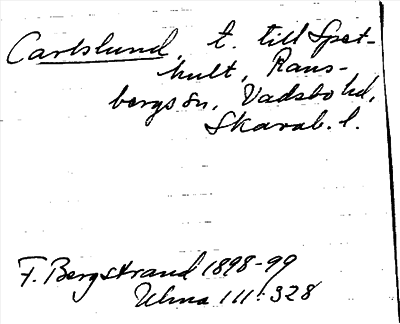 Carlslund, t. till Spet-
hult, Rans-
bergs sn, Vadsbo hd,
Skarab. l.
F. Bergstrand 1898-99
Ulma 111:328